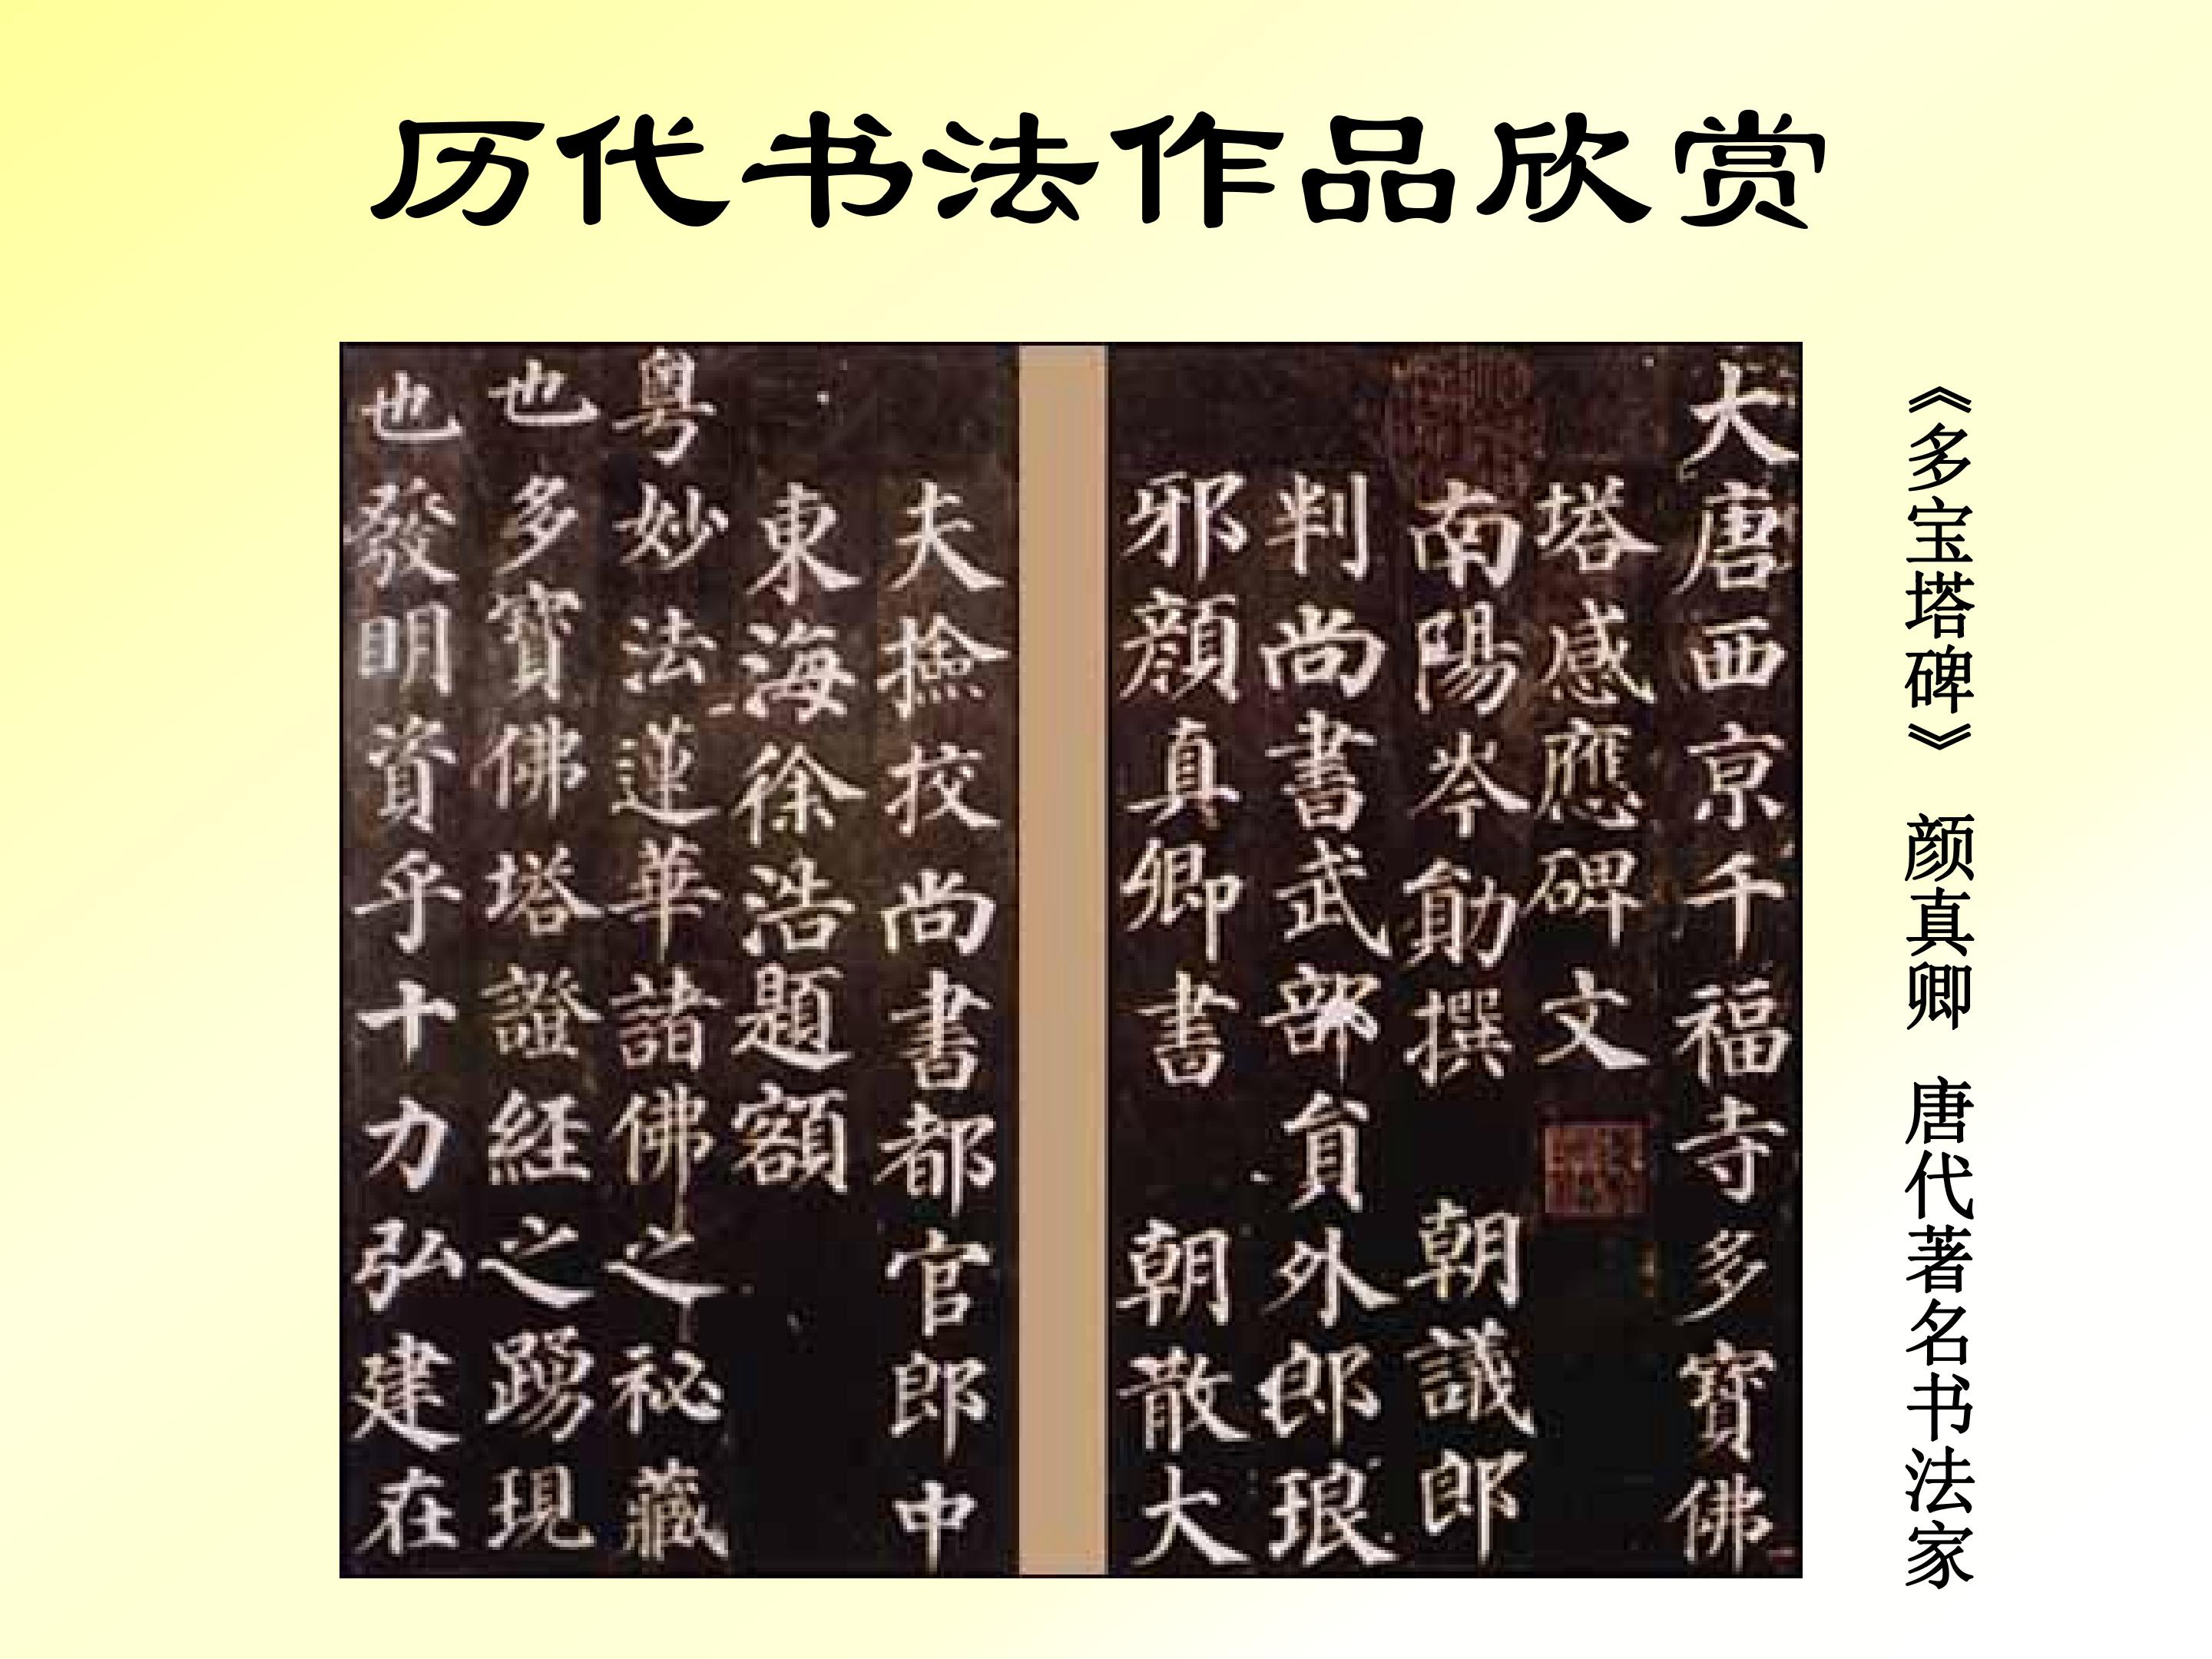 历代书法作品欣赏
《多宝塔碑》 颜真卿 唐代著名书法家
大唐西京千福寺多寶佛
塔感應碑文
南陽岑勛撰 朝議郎
判尚書武部員外郎琅
邪顏真卿書 朝散大
夫撿挍尚書都官郎中
東海徐浩題額
粵妙法蓮華諸佛之祕藏
也多寶佛塔證經之踴現
也發明資乎十力弘建在